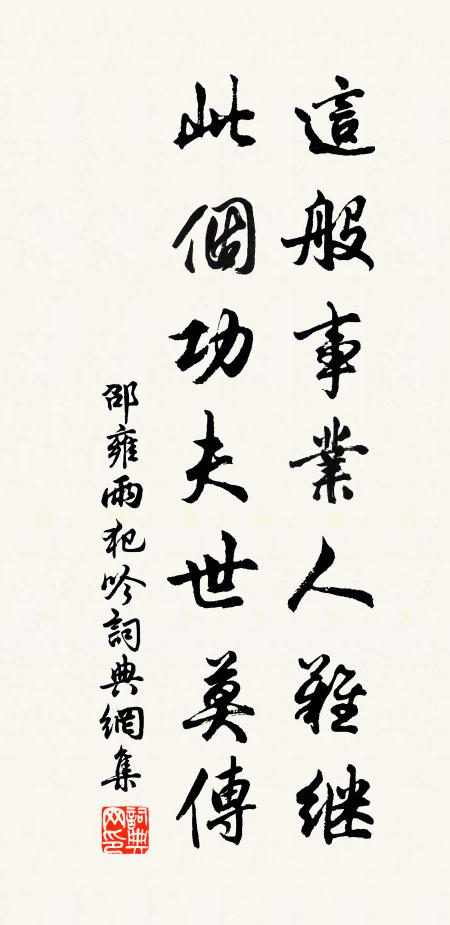 這般事業人難継
此個功夫世莫傳
邵雍兩犯吟詞典網集
詞典网印